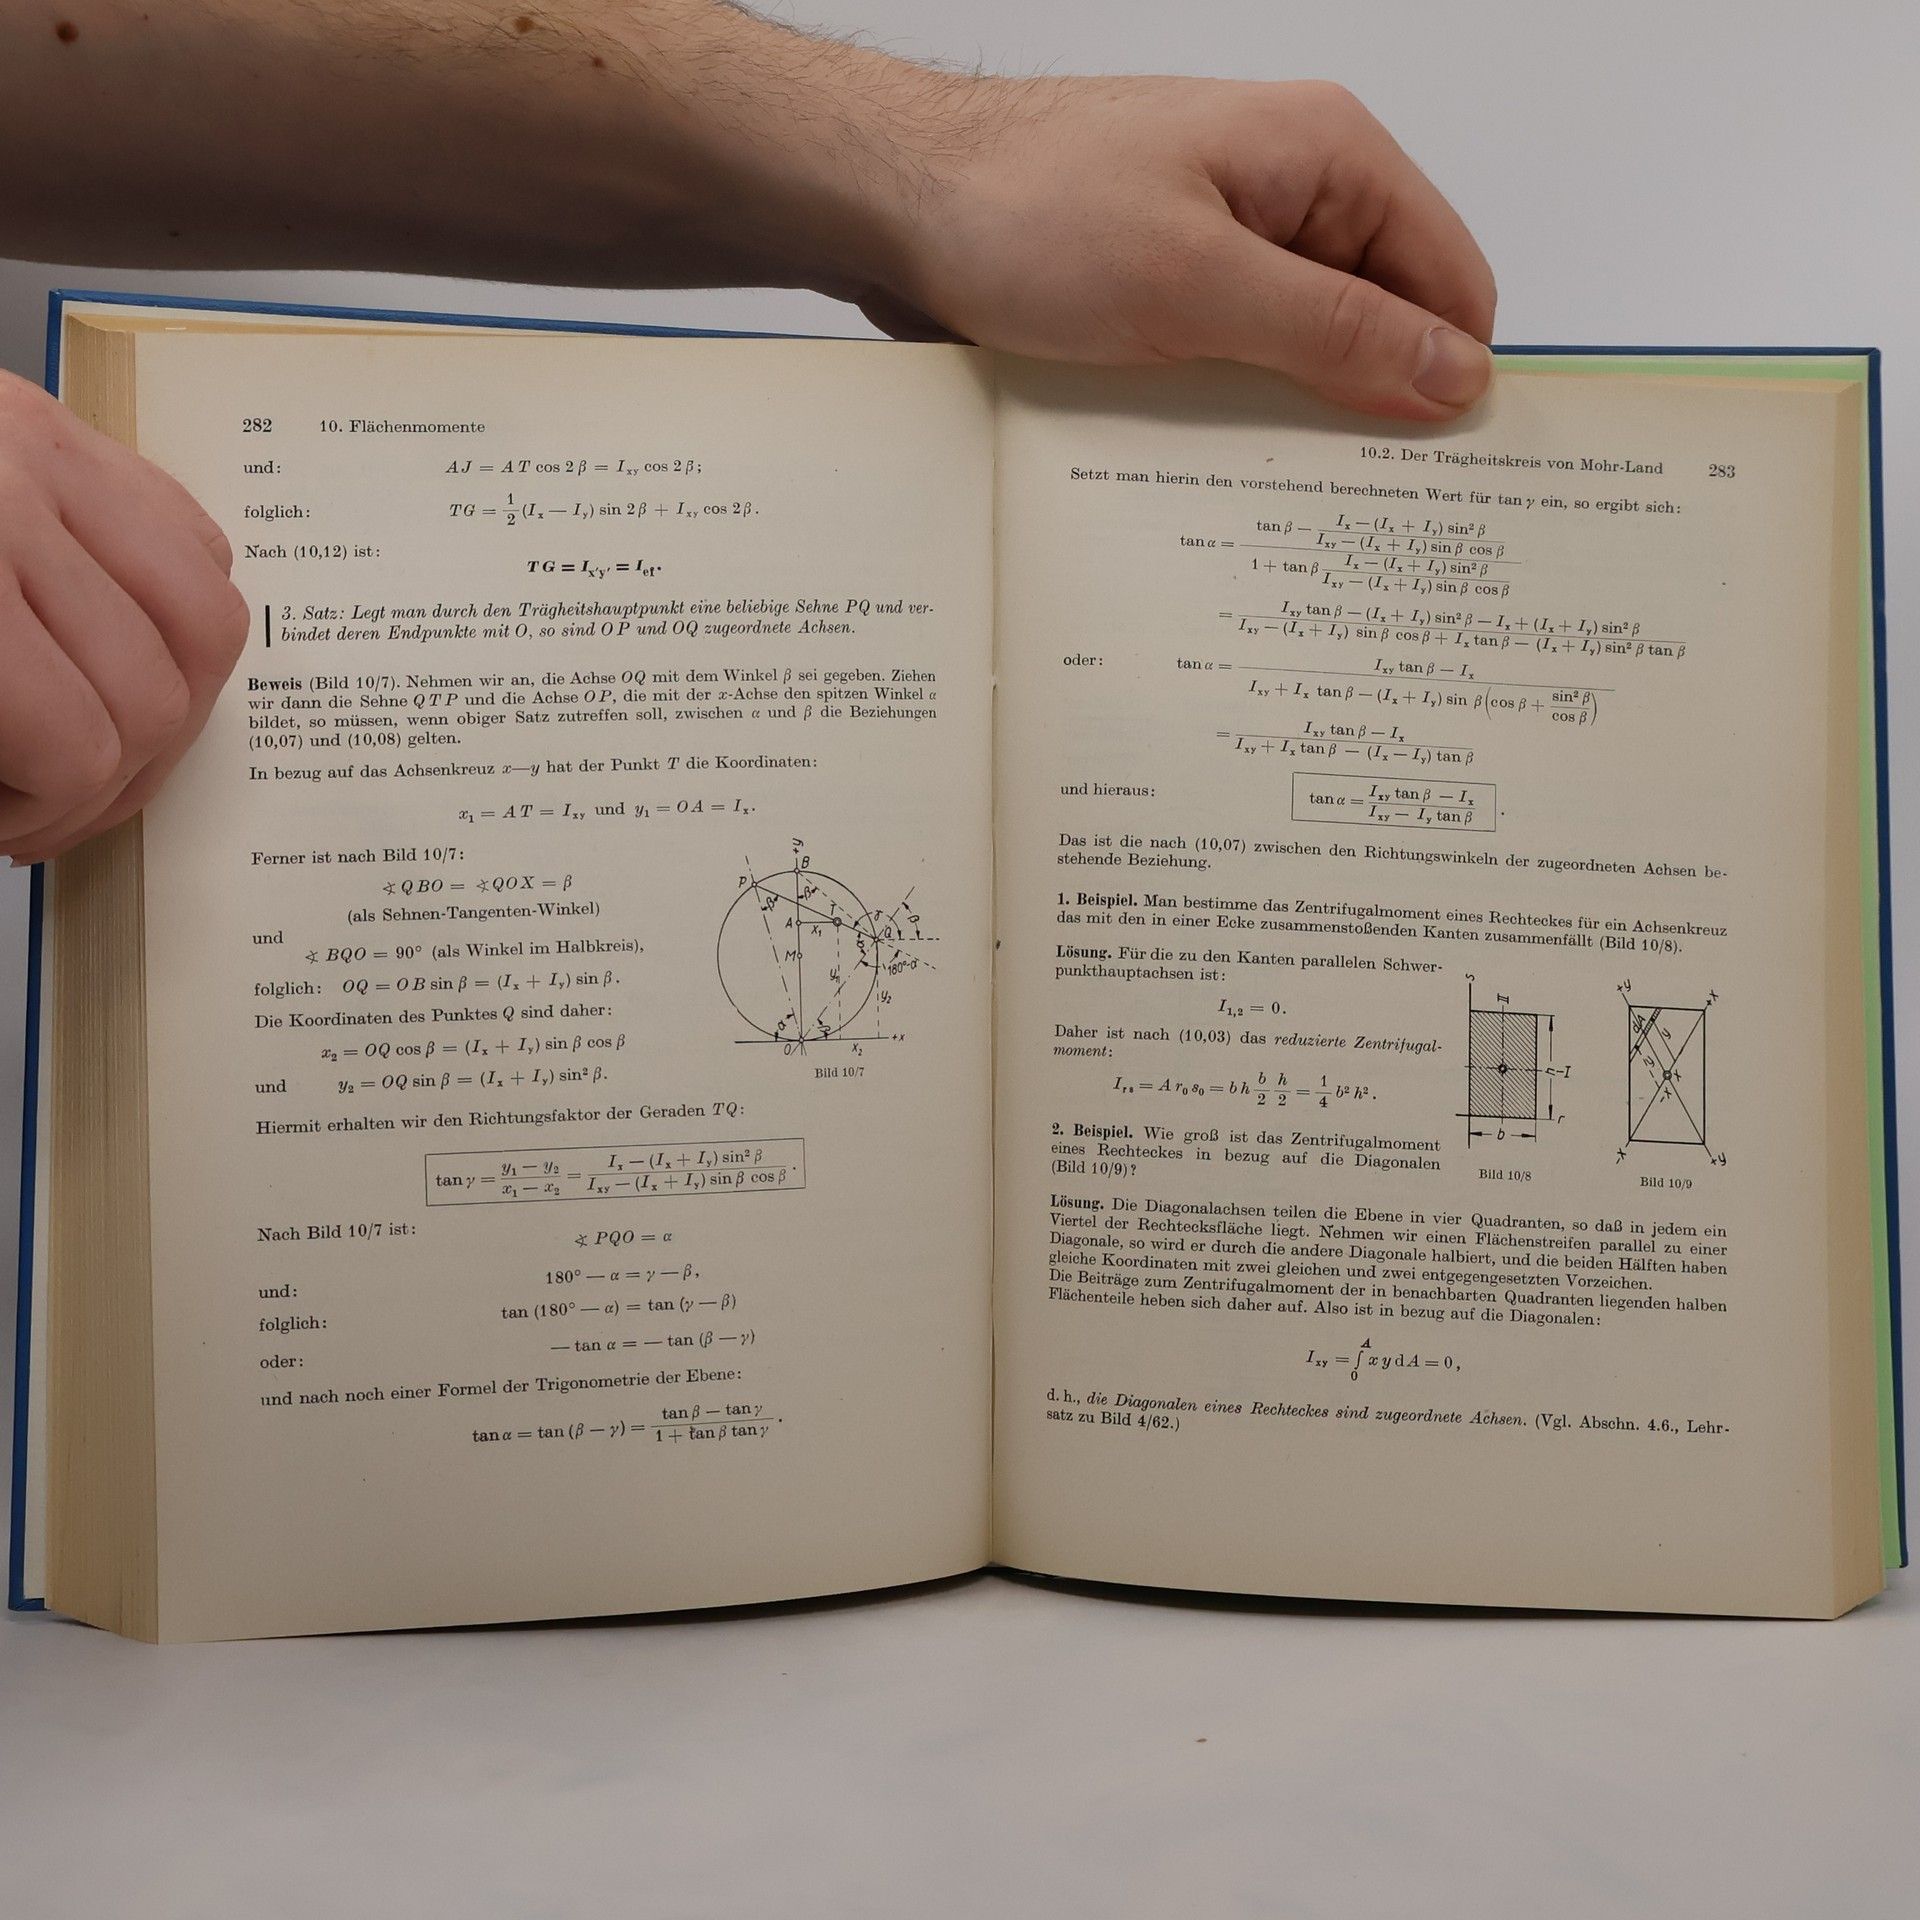 282 10. Flächenmomente
und: AJ = AT cos 2β = I_xy cos 2β;
folglich: TG = 1/2 (I_x — I_y) sin 2β + I_xy cos 2β.
Nach (10,12) ist:
TG = I_x'y' = I_ef.
3. Satz: Legt man durch den Trägheitshauptpunkt eine beliebige Sehne PQ und ver-
bindet deren Endpunkte mit O, so sind OP und OQ zugeordnete Achsen.
Beweis (Bild 10/7). Nehmen wir an, die Achse OQ mit dem Winkel β sei gegeben. Ziehen
wir dann die Sehne QTP und die Achse OP, die mit der x-Achse den spitzen Winkel α
bildet, so müssen, wenn obiger Satz zutreffen soll, zwischen α und β die Beziehungen
(10,07) und (10,08) gelten.
In bezug auf das Achsenkreuz x—y hat der Punkt T die Koordinaten:
x₁ = AT = I_xy und y₁ = OA = I_x.
Ferner ist nach Bild 10/7:
∢ QBO = ∢ QOX = β
(als Sehnen-Tangenten-Winkel)
und
∢ BQO = 90° (als Winkel im Halbkreis),
folglich: OQ = OB sin β = (I_x + I_y) sin β.
Die Koordinaten des Punktes Q sind daher:
x₂ = OQ cos β = (I_x + I_y) sin β cos β
und y₂ = OQ sin β = (I_x + I_y) sin² β.
+y
B
P
β
β
A
x₁
T
γ
β
Q
M
180°-α
y₁
y₂
α
β
O
x₂
+x
Bild 10/7
Hiermit erhalten wir den Richtungsfaktor der Geraden TQ:
tan γ = (y₁ — y₂)/(x₁ — x₂) = (I_x — (I_x + I_y) sin² β)/(I_xy — (I_x + I_y) sin β cos β).
Nach Bild 10/7 ist:
∢ PQO = α
180° — α = γ — β,
und:
tan (180° — α) = tan (γ — β)
folglich:
— tan α = — tan (β — γ)
oder:
und nach noch einer Formel der Trigonometrie der Ebene:
tan α = tan (β — γ) = (tan β — tan γ)/(1 + tan β tan γ).
10.2. Der Trägheitskreis von Mohr-Land 283
Setzt man hierin den vorstehend berechneten Wert für tan γ ein, so ergibt sich:
tan α = (tan β — (I_x — (I_x + I_y) sin² β)/(I_xy — (I_x + I_y) sin β cos β))/(1 + tan β (I_x — (I_x + I_y) sin² β)/(I_xy — (I_x + I_y) sin β cos β))
= (I_xy tan β — (I_x + I_y) sin² β — I_x + (I_x + I_y) sin² β)/(I_xy — (I_x + I_y) sin β cos β + I_x tan β — (I_x + I_y) sin² β tan β)
oder: tan α = (I_xy tan β — I_x)/(I_xy + I_x tan β — (I_x + I_y) sin β (cos β + sin² β/cos β))
= (I_xy tan β — I_x)/(I_xy + I_x tan β — (I_x — I_y) tan β)
und hieraus: tan α = (I_xy tan β — I_x)/(I_xy — I_y tan β).
Das ist die nach (10,07) zwischen den Richtungswinkeln der zugeordneten Achsen be-
stehende Beziehung.
1. Beispiel. Man bestimme das Zentrifugalmoment eines Rechteckes für ein Achsenkreuz
das mit den in einer Ecke zusammenstoßenden Kanten zusammenfällt (Bild 10/8).
Lösung. Für die zu den Kanten parallelen Schwer-
punkthauptachsen ist:
I₁,₂ = 0.
Daher ist nach (10,03) das reduzierte Zentrifugal-
moment:
I_rs = A r₀ s₀ = b h b/2 h/2 = 1/4 b² h².
2. Beispiel. Wie groß ist das Zentrifugalmoment
eines Rechteckes in bezug auf die Diagonalen
(Bild 10/9)?
s
II
h
I
r
b
Bild 10/8
+y
+x
dA
y
-y
x
-x
-x
+y
Bild 10/9
Lösung. Die Diagonalachsen teilen die Ebene in vier Quadranten, so daß in jedem ein
Viertel der Rechtecksfläche liegt. Nehmen wir einen Flächenstreifen parallel zu einer
Diagonale, so wird er durch die andere Diagonale halbiert, und die beiden Hälften haben
gleiche Koordinaten mit zwei gleichen und zwei entgegengesetzten Vorzeichen.
Die Beiträge zum Zentrifugalmoment der in benachbarten Quadranten liegenden halben
Flächenteile heben sich daher auf. Also ist in bezug auf die Diagonalen:
I_xy = ∫₀ᴬ x y dA = 0,
d. h., die Diagonalen eines Rechteckes sind zugeordnete Achsen. (Vgl. Abschn. 4.6., Lehr-
satz zu Bild 4/62.)